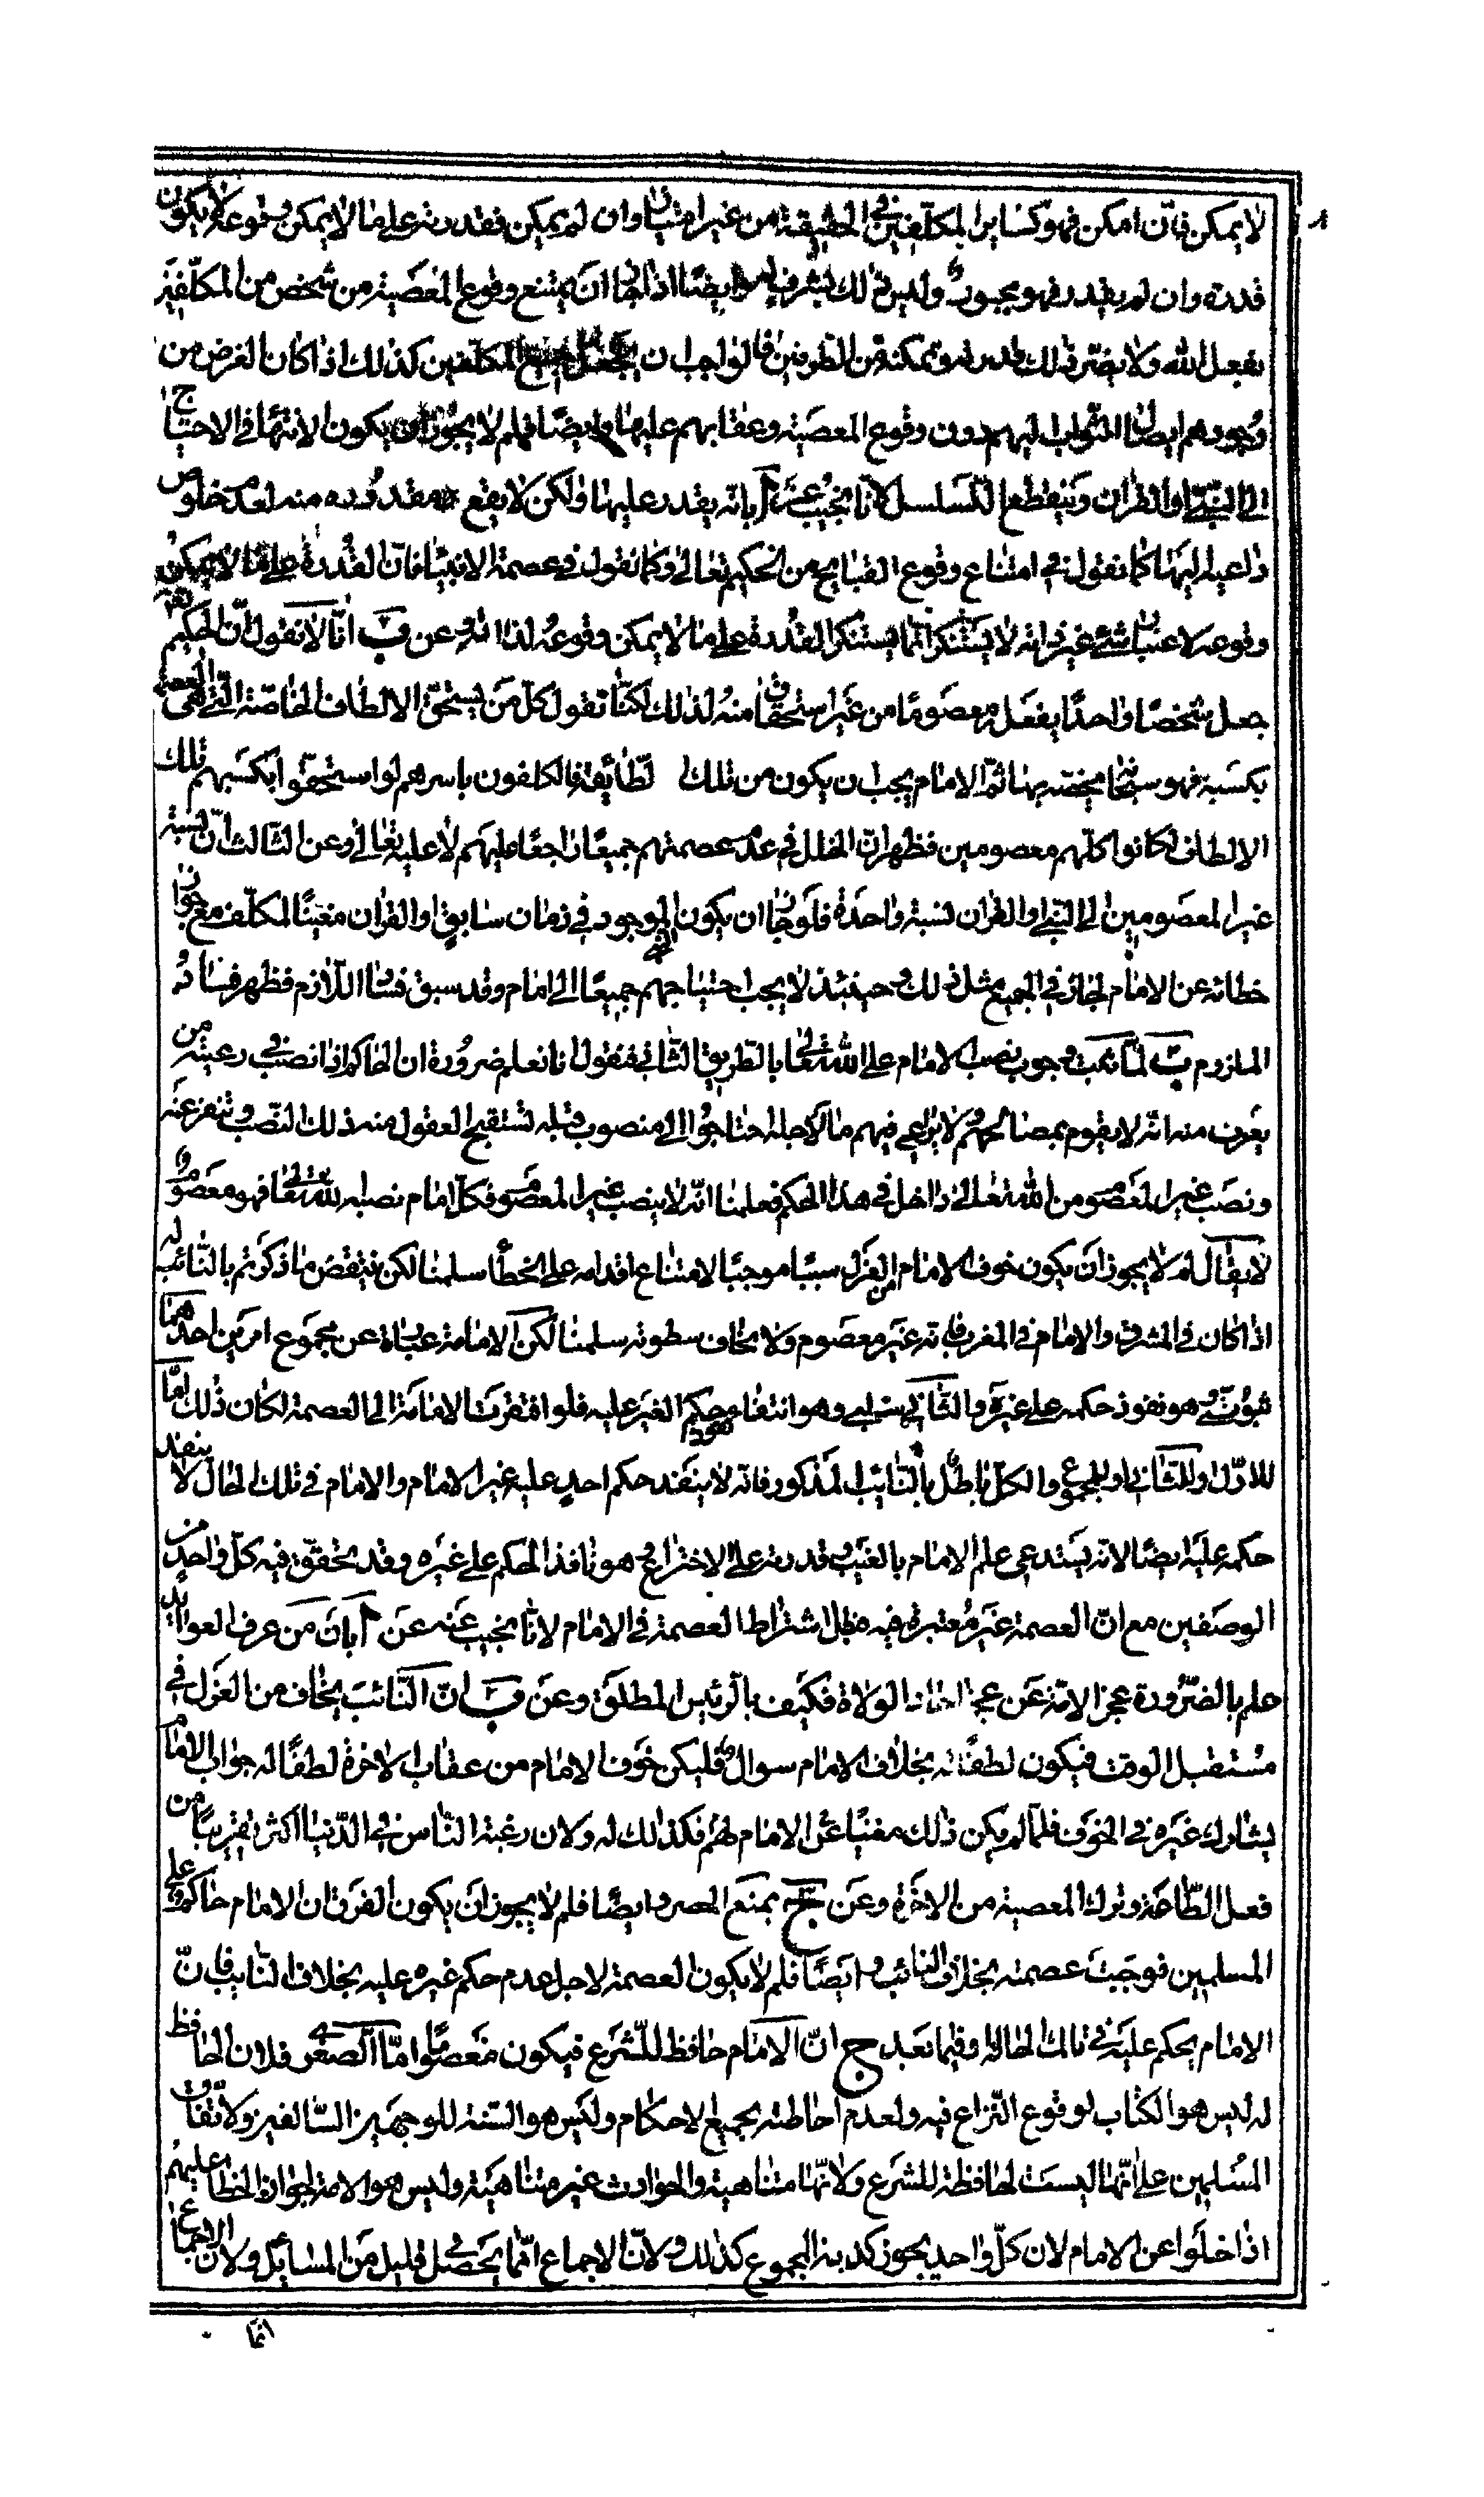 لا يمكن فان امكن فهو كسائر المكلفين في الحقيقة من غير امتياز وان لم يمكن فقدرته على ما لا يمكن وقوعه لا يكون
قدرة وان لم يقدر فهو مجبور وليس ذلك بشرف له وايضا اذا جاز ان يمتنع وقوع المعصية من شخص من المكلفين
بفعل الله ولا يضر ذلك قدرته وتمكنه من الطرفين فالواجب ان يجعل جميع المكلفين كذلك اذا كان الغرض من
وجودهم ايصال الثواب اليهم دون وقوع المعصية وعقابهم عليها وايضا فلم لا يجوز ان يكون الانتهاء في الاحتياج
الى النبي او القران وينقطع التسلسل لانا نجيب عن آ بانه يقدر عليها ولكن لا يقع مقدوره منه لعدم خلوص
داعيه اليها كما نقول في امتناع وقوع القبايح من الحكيم تعالى وكما نقول في عصمة الانبياء فان القدرة على ما لا يمكن
وقوعه لاعتبار شئ غير ذاته لا يستنكر انما يستنكر القدرة على ما لا يمكن وقوعه لذاته وعن ب انا لا نقول ان الحكيم تعالى
جعل شخصا واحدا بفعله معصوما من غير استحقاق منه لذلك لكنا نقول كل من يستحق الالطاف الخاصة التي هي العصمة
بكسبه فهو سبحانه يخصه بها ثم الامام يجب ان يكون من تلك الطائفة فالمكلفون باسرهم لو استحقوا بكسبهم تلك
الالطاف لكانوا كلهم معصومين فظهر ان الخلل في عدم عصمتهم جميعا راجعا عليهم لا عليه تعالى وعن الثالث ان نسبة
غير المعصومين الى النبي او القران نسبة واحدة فلو جاز ان يكون النبي الموجود في زمان سابق او القران مغنيا لمكلف مع جواز
خطائه عن الامام لجاز في الجميع مثل ذلك وحينئذ لا يجب احتياجهم جميعا الى امام وقد سبق فساد اللازم فظهر فساد
الملزوم ب لما ثبت وجوب نصب الامام على الله تعالى بالطريق الثاني فنقول انا نعلم ضرورة ان الحاكم اذا نصب في رعيته من
يعرف منه انه لا يقوم بمصالحهم ولا يراعي فيهم ما لاجله احتاجوا الى منصوب قبله تستقبح العقول منه ذلك النصب وتنفر عنه
ونصب غير المعصوم من الله تعالى داخل في هذا الحكم فعلمنا انه لا ينصب غير المعصوم فكل امام نصبه الله تعالى فهو معصوم
لا يقال لم لا يجوز ان يكون خوف الامام من العزل سببا موجبا لامتناع اقدامه على الخطأ سلمنا لكن ينتقض ما ذكرتم بالنائب له
اذا كان في المشرق والامام في المغرب فانه غير معصوم ولا يخاف سطوته سلمنا لكن الامامة عبارة عن مجموع امرين احدهما
ثبوتي وهو نفوذ حكمه على غيره والثاني سلبي وهو انتفاء نفوذ حكم الغير عليه فلو افتقرت الامامة الى العصمة لكان ذلك اما
للاول او للثاني او للمجموع والكل باطل بالنائب المذكور فانه لا ينفذ حكم احد عليه غير الامام والامام في تلك الحال لا ينفذ
حكمه عليه ايضا لانه يستدعي علم الامام بالغيب وقدرته على الاختراع وهو نافذ الحكم على غيره وقد تحقق فيه كل واحد من
الوصفين مع ان العصمة غير معتبرة فيه بطل اشتراط العصمة في الامام لانا نجيب عنه عن آ بان من عرف العوايد
علم بالضرورة عجز الامة عن عزل احاد الولاة فكيف بالرئيس المطلق وعن ب ان النائب يخاف من العزل في
مستقبل الوقت فيكون لطفا له بخلاف الامام سوال فليكن خوف الامام من عقاب الاخرة لطفا له جواب الامام
يشارك غيره في الخوف فلما لم يكن ذلك مغنيا عن الامام لهم فكذلك له ولان رغبة الناس في الدنيا اكثر تقريبا من
فعل الطاعة وترك المعصية من الاخرة وعن ج بمنع الحصر وايضا فلم لا يجوز ان يكون الفرق ان الامام حاكم على
المسلمين فوجبت عصمته بخلاف النائب وايضا فلم لا يكون العصمة لاجل عدم حكم غيره عليه بخلاف النايب فان
الامام يحكم عليه في تلك الحالة وفيما بعد ج ان الامام حافظ للشرع فيكون معصوما اما الصغرى فلان الحافظ
له ليس هو الكتاب لوقوع النزاع فيه ولعدم احاطته بجميع الاحكام وليس هو السنة للوجهين السالفين ولاتفاق
المسلمين على انها ليست لحافظة للشرع ولانها متناهية والحوادث غير متناهية وليس هو الامة لجواز الخطا عليهم
اذا خلوا عن الامام لان كل واحد يجوز كذبه فالمجموع كذلك ولان الاجماع انما يحصل في قليل من المسايل ولان الاجماع
انما